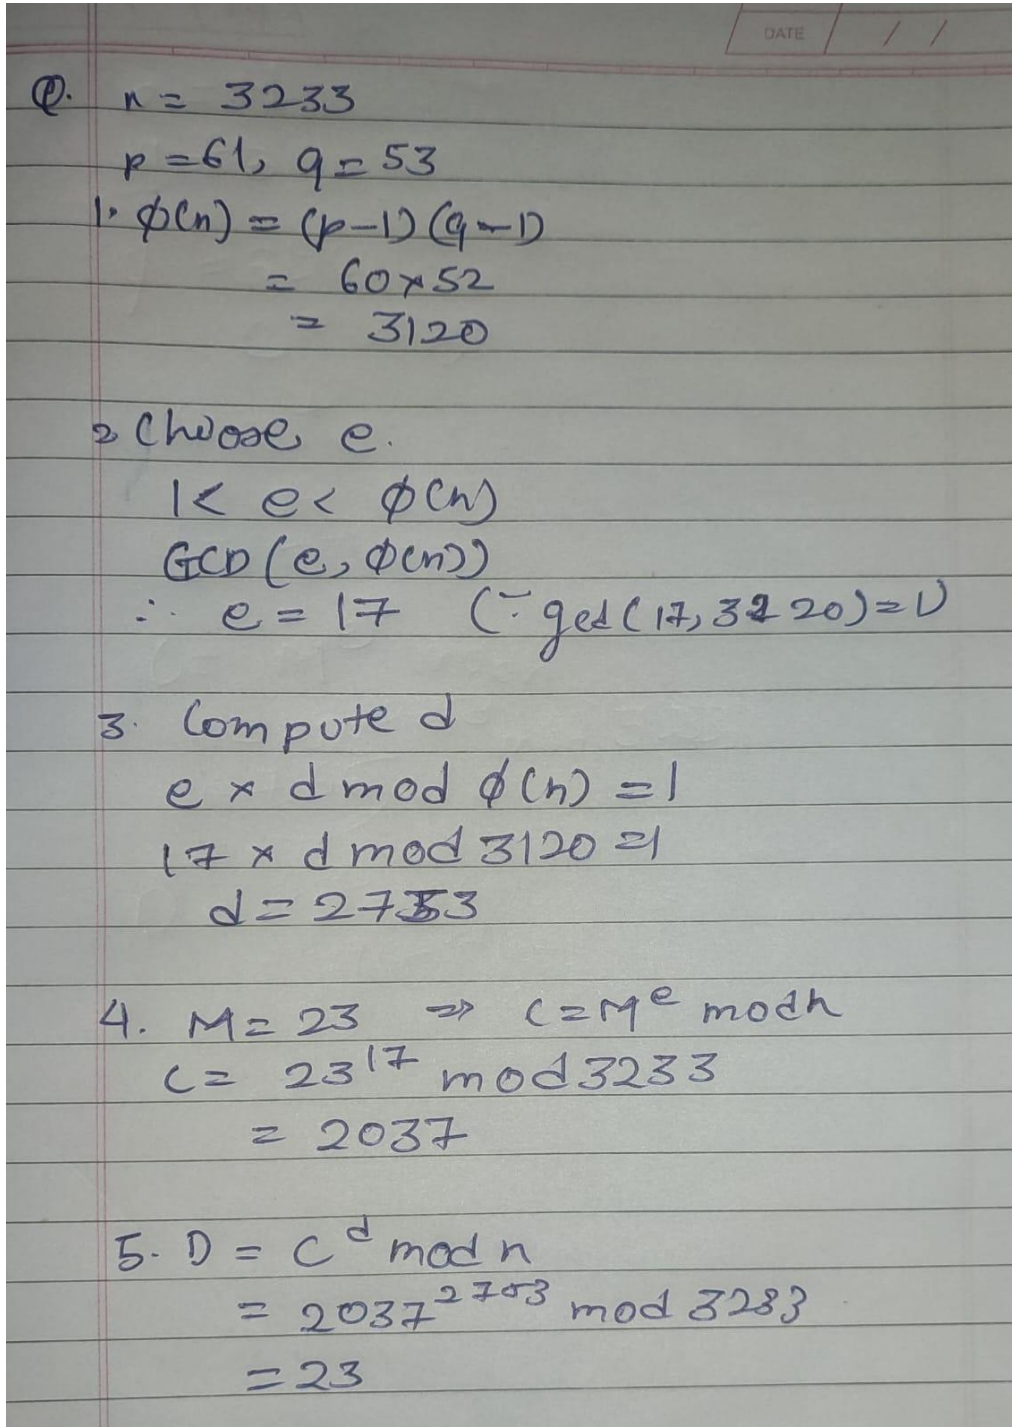 DATE / /
Q. n = 3233
p = 61, q = 53
1. ϕ(n) = (p-1)(q-1)
= 60 × 52
= 3120
2 Choose e.
1 < e < ϕ(n)
GCD (e, ϕ(n))
∴ e = 17 (∵ gcd(17, 3120) = 1)
3. Compute d
e × d mod ϕ(n) = 1
17 × d mod 3120 = 1
d = 2753
4. M = 23 ⇒ C = M^e mod n
C = 23^17 mod 3233
= 2037
5. D = C^d mod n
= 2037^2753 mod 3233
= 23